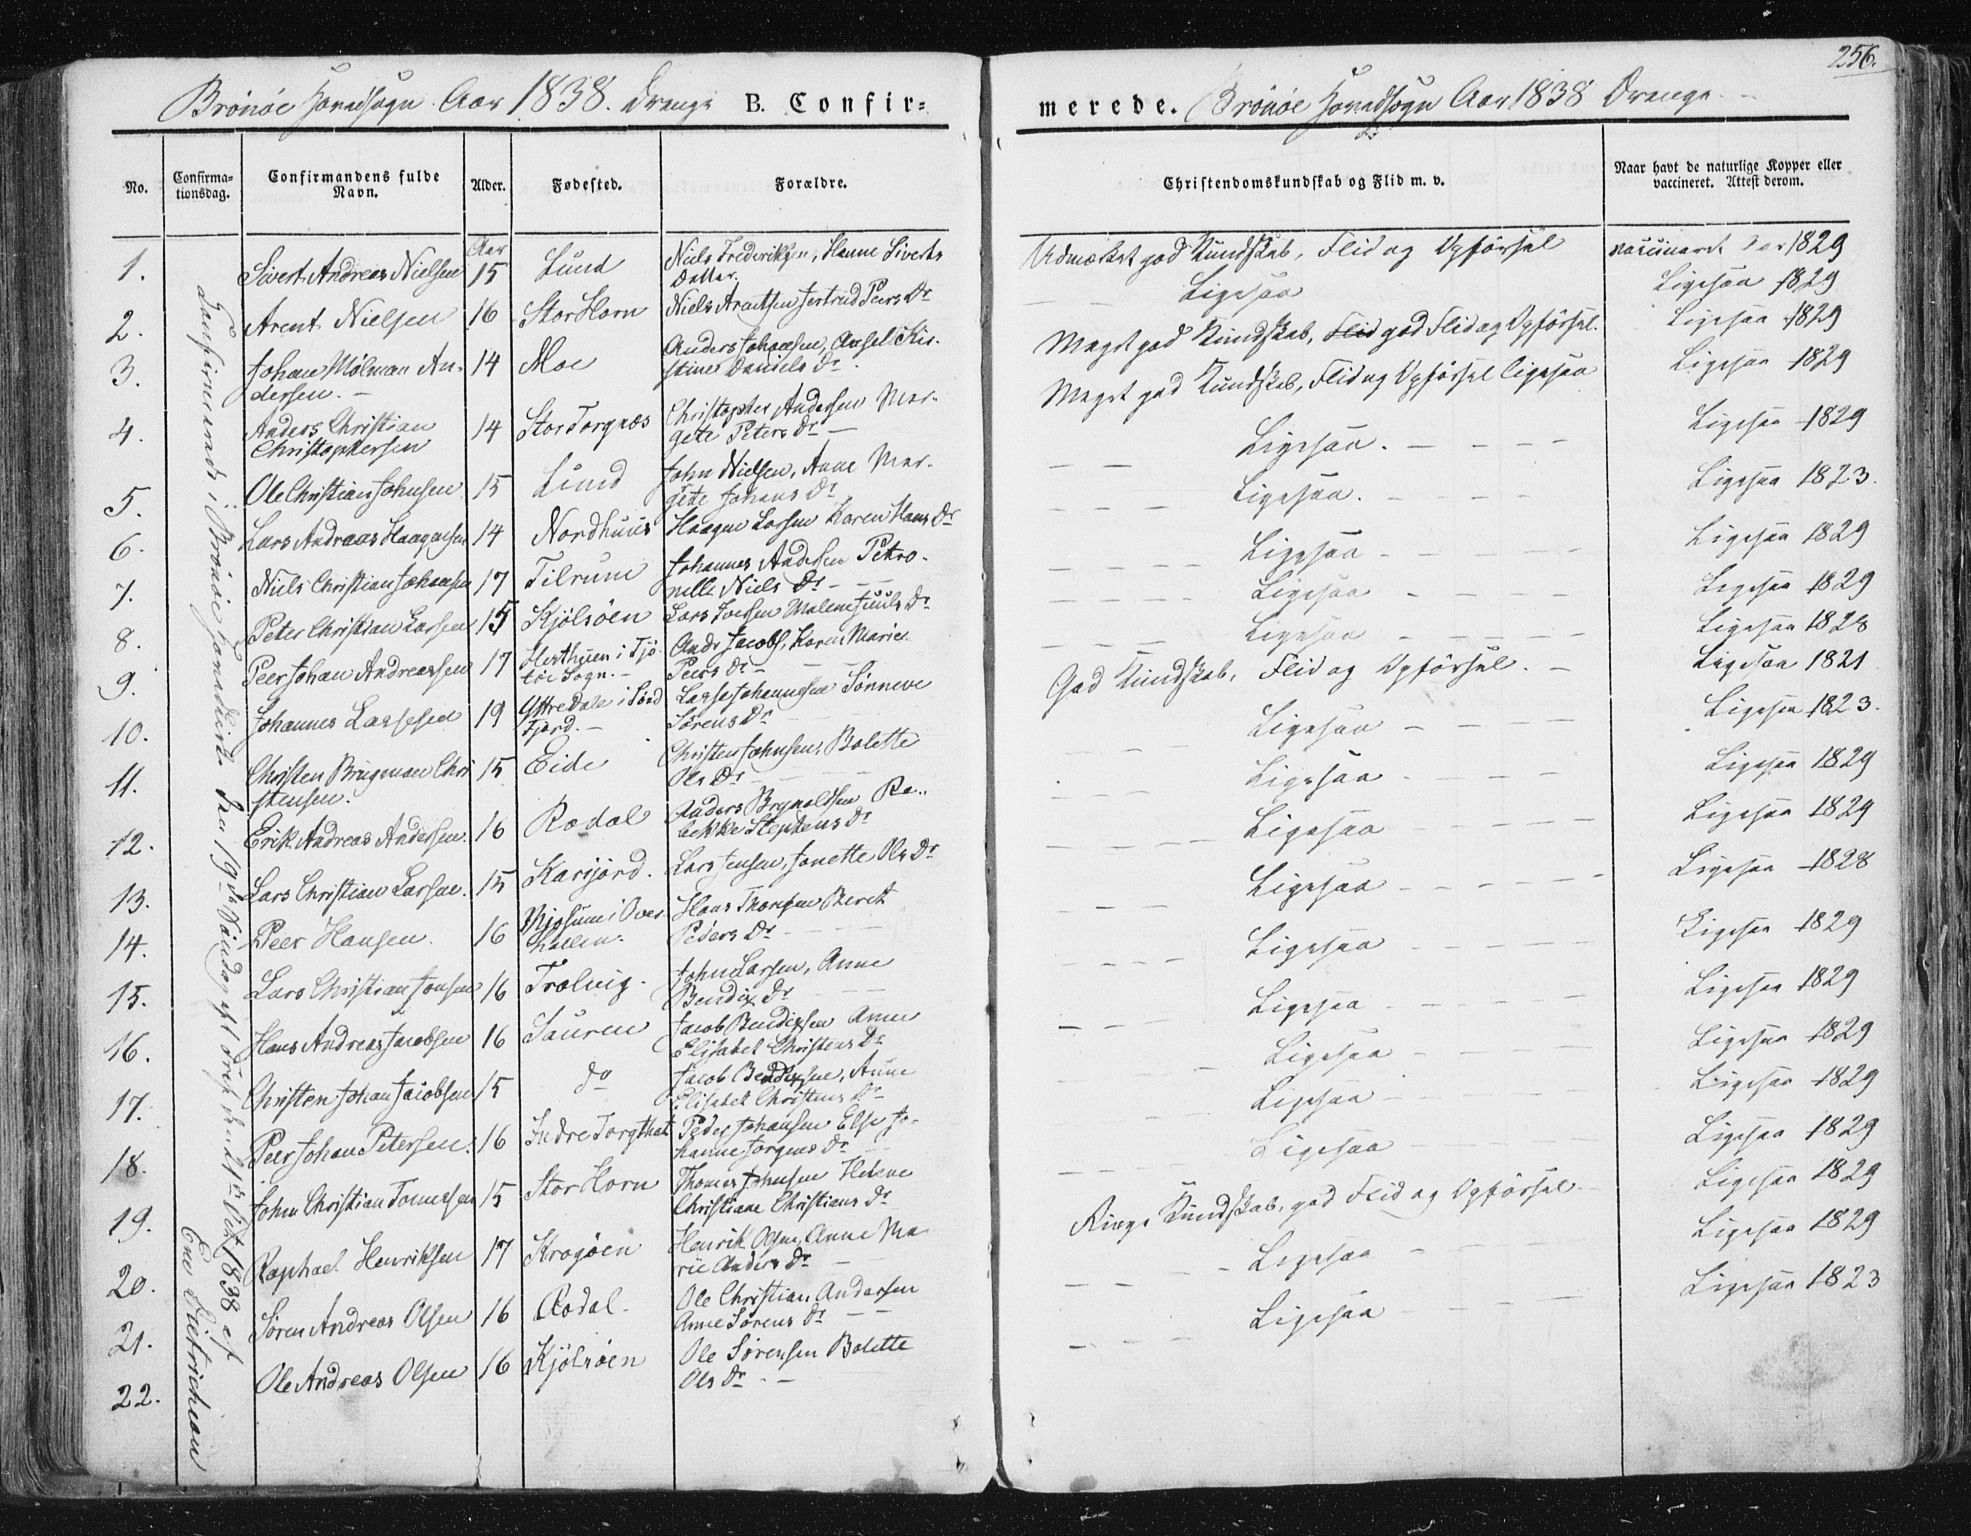 256.
Brönöe Hovedsogn Aar 1838. Drenge B. Confir=
merede. Brönöe Hovedsogn Aar 1838 Drenge
No. Confirma-tionsdag. Confirmandens fulde Navn. Alder. Fødested. Forældre.
Christendomskundskab og Flid m. v. Naar havt de naturlige Kopper eller vaccineret. Attest derom.
Confirmerede i Brönöe Hovedkirke den 19de Söndag 1838 af
Aar
1. Sivert Andreas Nielsen 15 Lund Niels Frederiksen, Hanne Siverts Datter. Udmærket god Kundskab, Flid og Opförsel vaccineret Aar 1829
2. Arent Nielsen 16 StorHorn Niels Arentsen Jertrud Peers Dr Ligesaa Ligesaa 1829
3. Johan Mölman An-
dersen. 14 Moe Anders Johansen, Axsel Kir-
stine Daniels Dr. Meget god Kundskab, Flid god Flid og Opförsel. Ligesaa 1829
4. Anders Christian
Christophersen 14 Stor Torgnæs Christopher Andersen Mar-
grete Peters Dr Meget god Kundskab, Flid og Opförsel ligesaa Ligesaa 1829
5. Ole Christian Johnsen 15 Lund John Nielsen, Anne Mar-
grete Johans Dr Ligesaa. Ligesaa 1829
6. Lars Andreas Haagensen 14 Nordhuus Haagen Larsen Karen Hans Dr Ligesaa. Ligesaa 1823.
7. Niels Christian Johansen 17 Tilrum Johannes Andersen Petro-
nelle Niels Dr Ligesaa Ligesaa 1829
8. Peter Christian Larsen 15 Kjölsöen Lars Malene Juuls Dr Ligesaa Ligesaa 1829
9. Peer Johan Andreassen 17 i Tjö-
töe Sogn. Andr Jacobs, Karen Marie
Peers Dr Ligesaa Ligesaa 1828
10. Johannes Lassesen 19 Yttre Dale i Sönd
Fjord. Lasse Johannesen Sönneve
Sörens Dr God Kundskab, Flid og Opförsel. Ligesaa 1821
11. Christen Brugman Chri
stensen. 15 Eide Christen Johnsen, Bolette
Ols Dr Ligesaa Ligesaa 1823.
12. Erik Andreas Andersen. 16 Rodal Anders Brynoldsen Re-
bekke Stephens Dr Ligesaa Ligesaa 1829
13. Lars Christian Larsen. 15 Karijord. Lars Jensen, Jonette Ols Dr Ligesaa Ligesaa 1829
14. Peer Hansen. 16 i Over
Hans Thomsen Berit
Peders Dr Ligesaa Ligesaa 1828
15. Lars Christian Jonsen 16 Trælvig. John Larsen, Anne
Bendix Dr Ligesaa Ligesaa 1829
16. Hans Andreas Jacobsen 16 Sauren Jacob Bendixsen Anne
Elisabet Christens Dr Ligesaa Ligesaa 1829
17. Christen Johan Jacobsen 15 do Jacob Bendixsen, Anne
Elisabet Christens Dr Ligesaa Ligesaa 1829
18. Peer Johan Petersen. 16 Indre Torghat Peder Johansen Else Jo-
hanne Jörgens Dr Ligesaa Ligesaa 1829
19. John Christian Tomessen 15 Stor Horn Thomes Johnsen Helene
Christiane Christians Dr Ligesaa Ligesaa 1829
20. Raphael Henriksen 17 Krogöen Henrik Olsen, Anne Ma
rie Anders Dr Ringe Kundskab, god Flid og Opförsel Ligesaa 1829
21. Sören Andreas Olsen 16 Rodal. Ole Christian Andersen
Anne Sörens Dr Ligesaa Ligesaa 1829
22. Ole Andreas Olsen 16 Kjölsöen Ole Sörensen Bolette
Ols Dr Ligesaa Ligesaa 1823